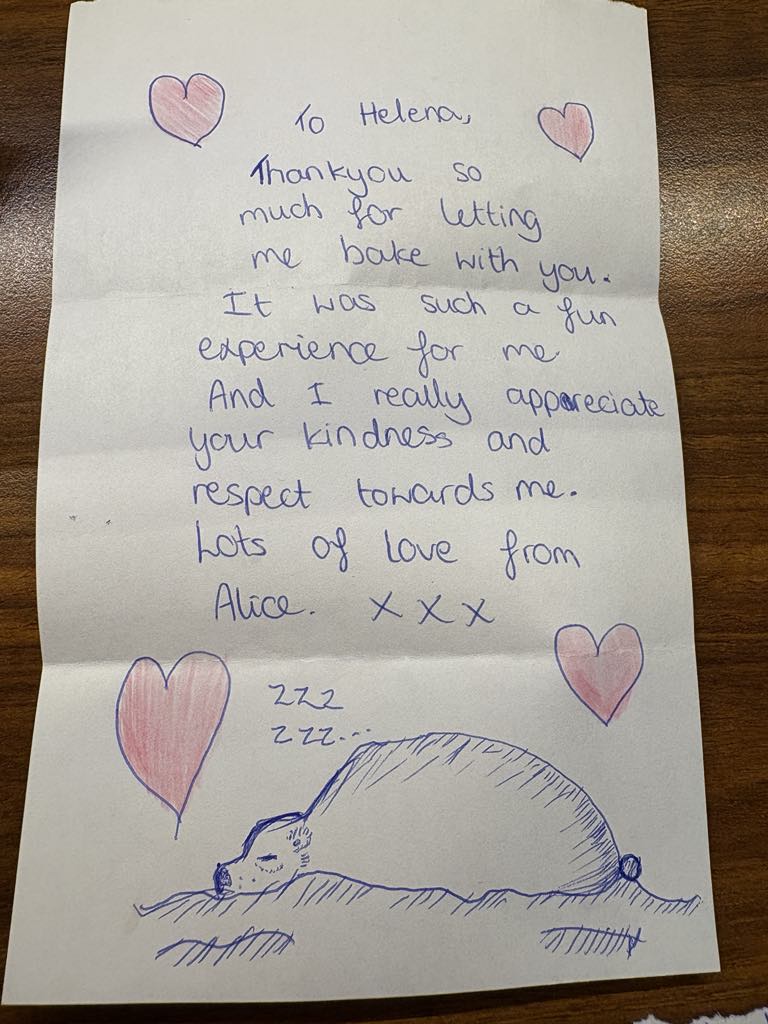 To Helena,
Thankyou so
much for letting
me bake with you.
It was such a fun
experience for me.
And I really appreciate
your kindness and
respect towards me.
Lots of love from
Alice. x x x
zzz
zzz...